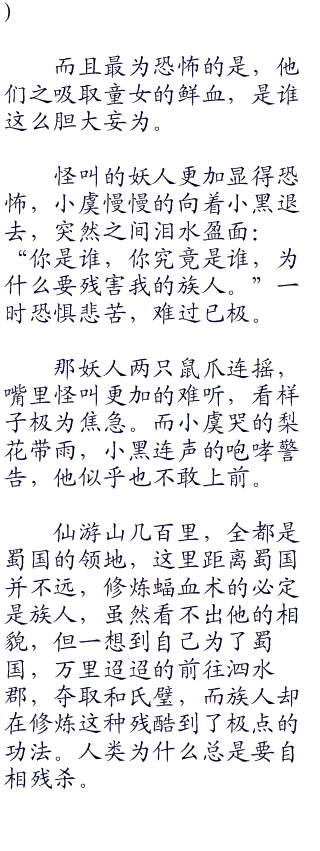 )
而且最为恐怖的是，他
们之吸取童女的鲜血，是谁
这么胆大妄为。
怪叫的妖人更加显得恐
怖，小虞慢慢的向着小黑退
去，突然之间泪水盈面：
“你是谁，你究竟是谁，为
什么要残害我的族人。”一
时恐惧悲苦，难过已极。
那妖人两只鼠爪连摇，
嘴里怪叫更加的难听，看样
子极为焦急。而小虞哭的梨
花带雨，小黑连声的咆哮警
告，他似乎也不敢上前。
仙游山几百里，全都是
蜀国的领地，这里距离蜀国
并不远，修炼蝠血术的必定
是族人，虽然看不出他的相
貌，但一想到自己为了蜀
国，万里迢迢的前往泗水
郡，夺取和氏璧，而族人却
在修炼这种残酷到了极点的
功法。人类为什么总是要自
相残杀。